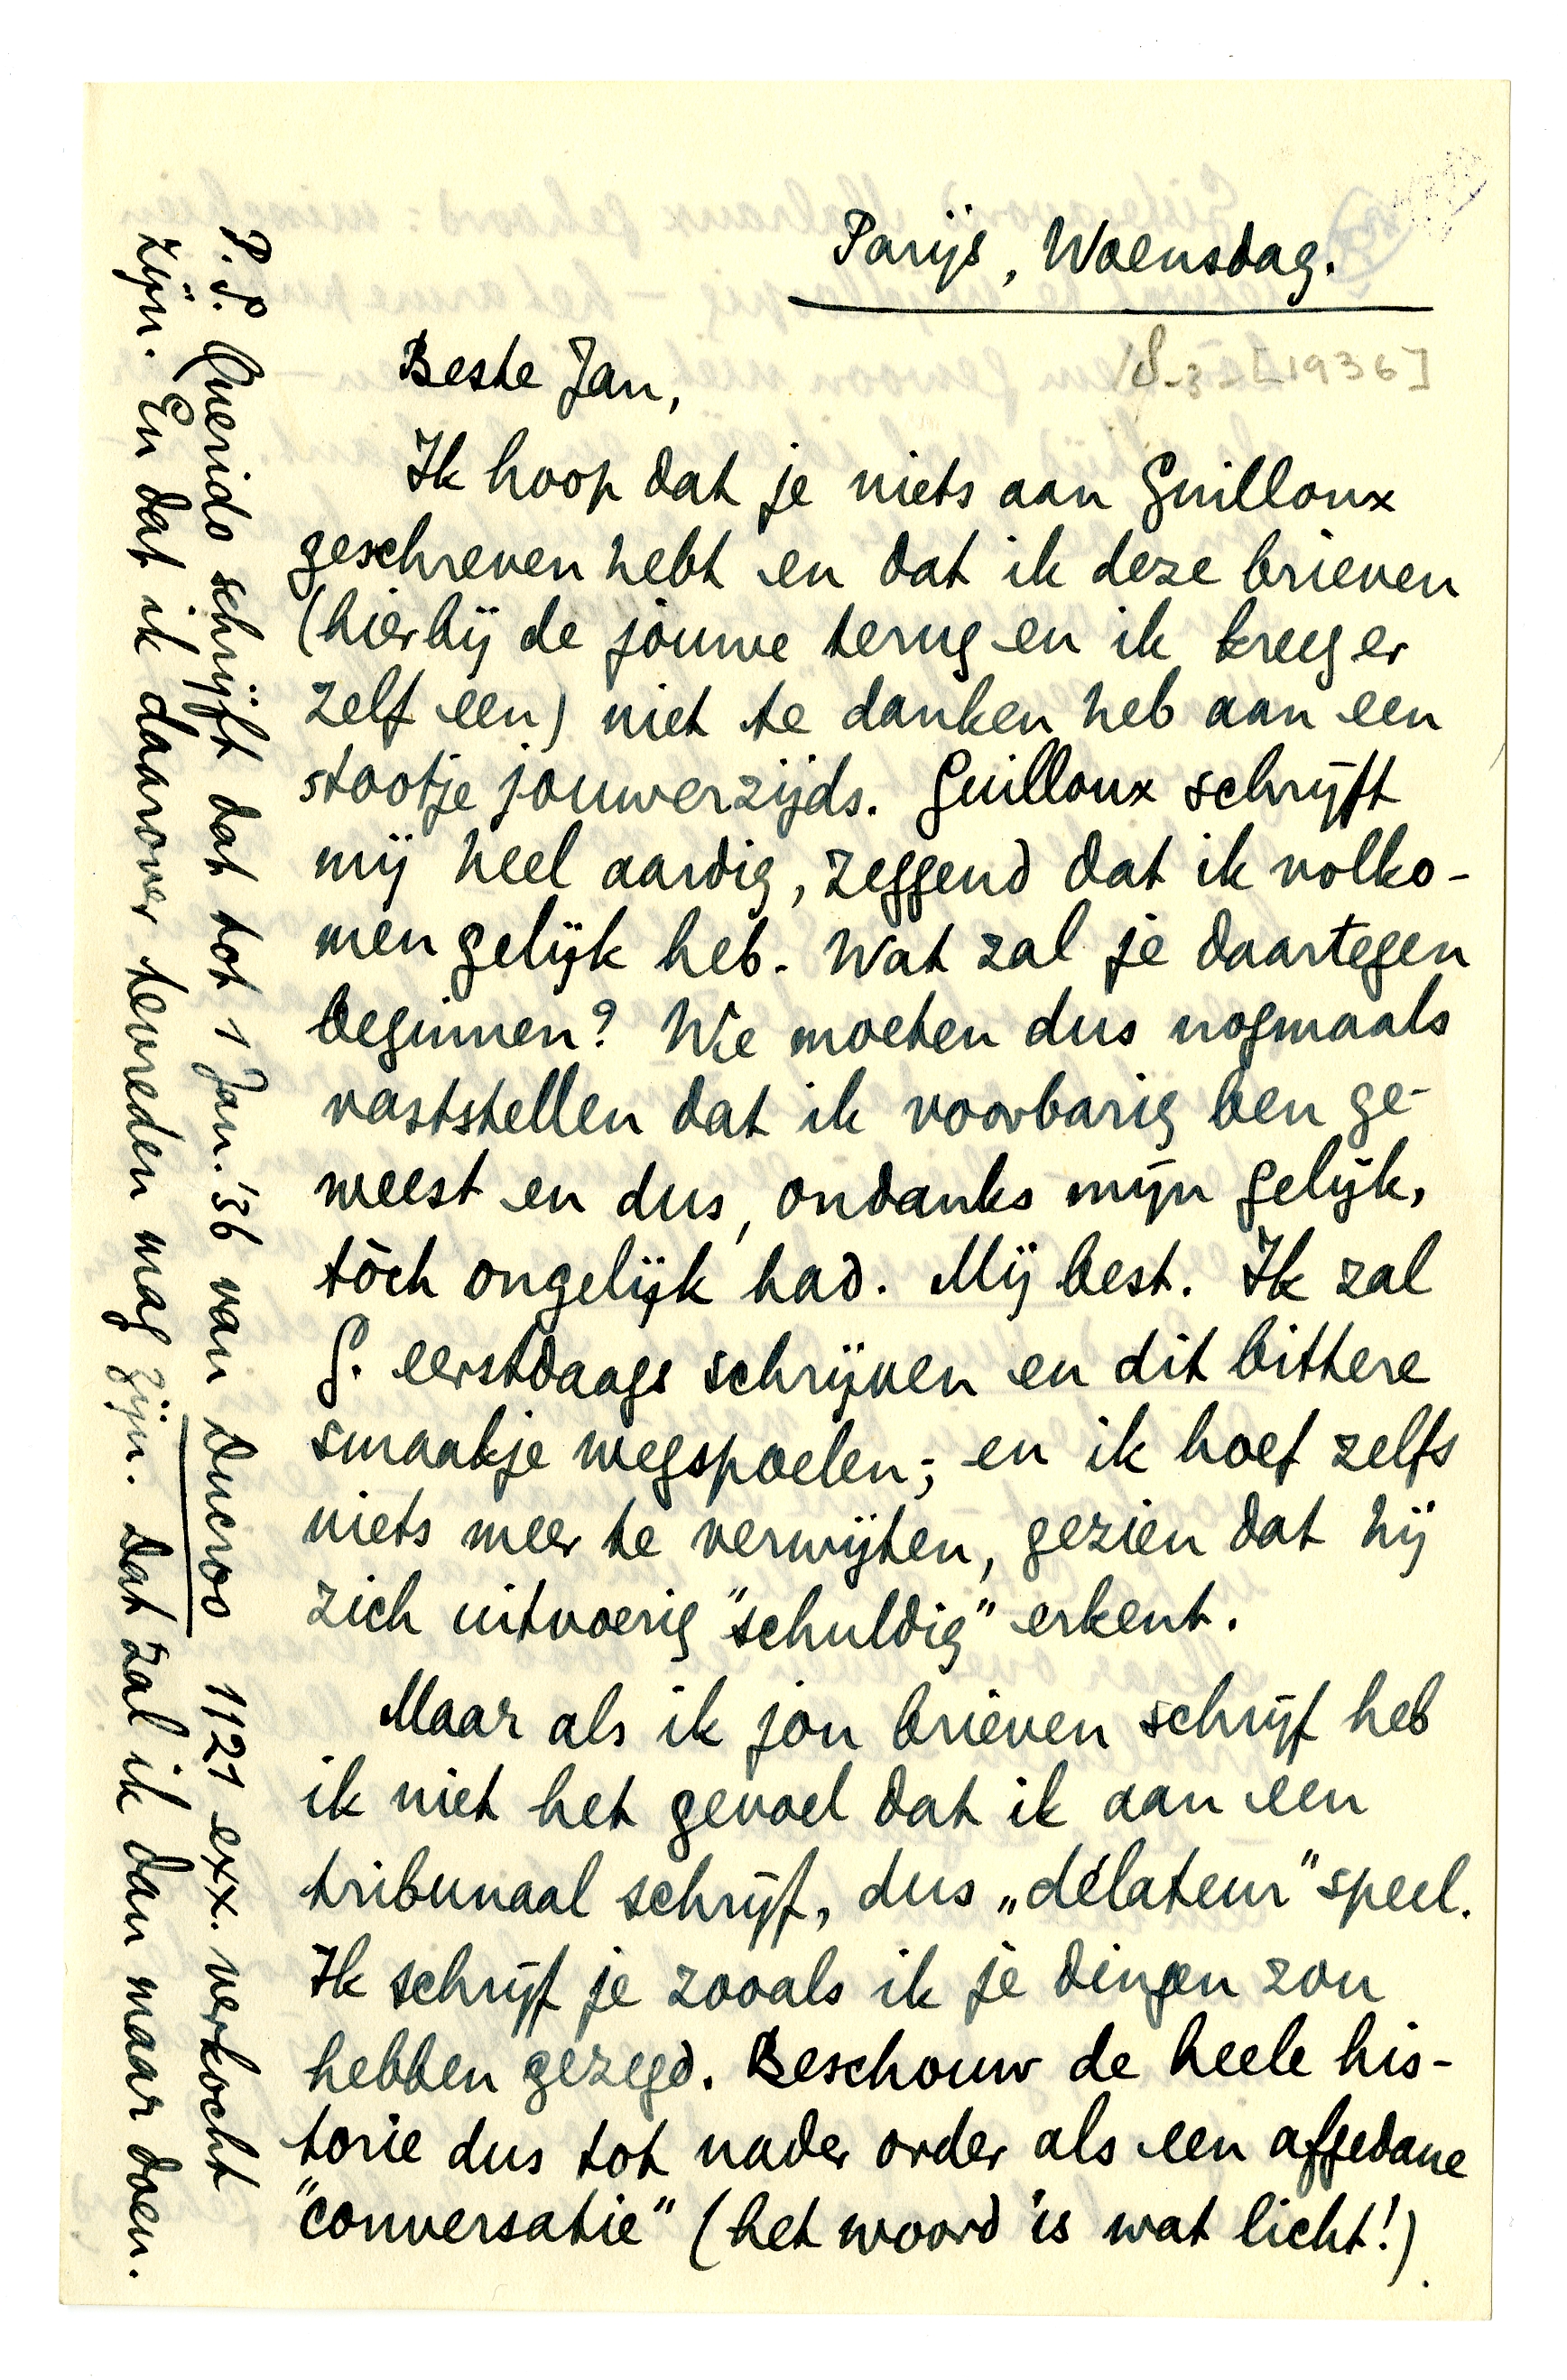 Parijs, Woensdag.
18-3-[1936]
Beste Jan,
Ik hoop dat je niets aan Guilloux
geschreven hebt en dat ik deze brieven
(hierbij de jouwe terug en ik kreeg er
zelf een) niet te danken heb aan een
stootje jouwerzijds. Guilloux schrijft
mij heel aardig, zeggend dat ik volko-
men gelijk heb. Wat zal je daartegen
beginnen? We moeten dus nogmaals
vaststellen dat ik voorbarig ben ge-
weest en dus, ondanks mijn gelijk,
tòch ongelijk had. Mij best. Ik zal
G. eerstdaags schrijven en dit bittere
smaakje wegspoelen; en ik hoef zelfs
niets meer te verwijten, gezien dat hij
zich uitvoerig "schuldig" erkent.
Maar als ik jou brieven schrijf heb
ik niet het gevoel dat ik aan een
tribunaal schrijf, dus „délateur" speel.
Ik schrijf je zooals ik je dingen zou
hebben gezegd. Beschouw de heele his-
torie dus tot nader order als een afgedane
"conversatie" (het woord is wat licht!)
P.S. Querido schrijft dat tot 1 Jan. '36 van Ducroo 1121 exx. verkocht
zijn. En dat ik daarover tevreden mag zijn. Dat zal ik dan maar doen.